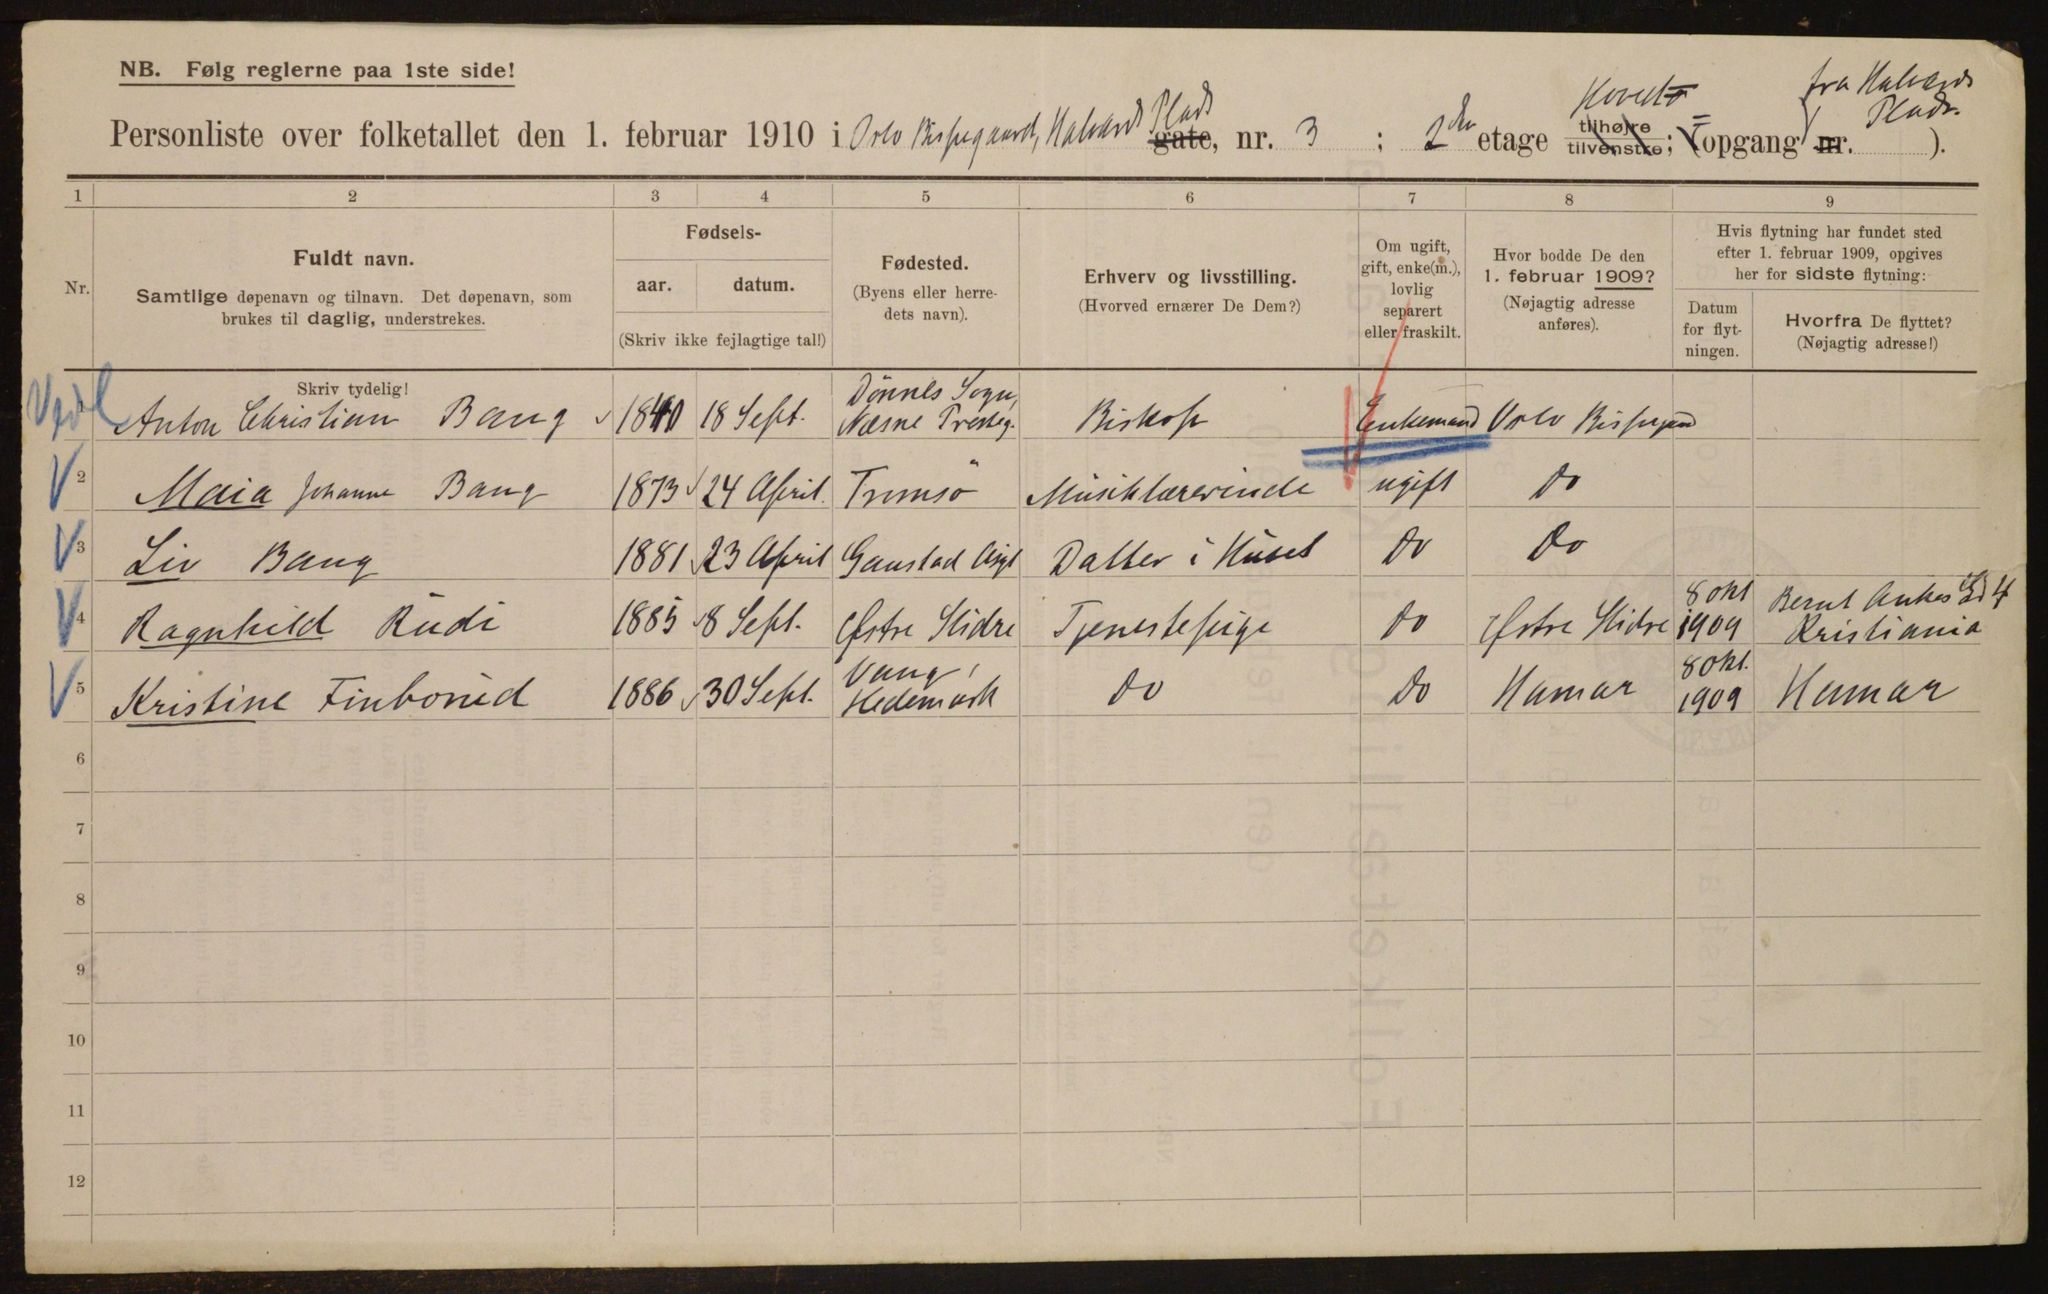 NB. Følg reglerne paa 1ste side!
Personliste over folketallet den 1. februar 1910 i Oslo Bispegaard, Halvards Plads gate, nr. 3 ; 2den etage Hoved= tilhøjre tilvenstre; (opgang fra Halvards Plads. nr. ).
1 2 3 4 5 6 7 8 9
Nr.
Fuldt navn.
Samtlige døpenavn og tilnavn. Det døpenavn, som
brukes til daglig, understrekes.
Fødsels-
aar. datum.
(Skriv ikke fejlagtige tal!)
Fødested.
(Byens eller herre-
dets navn).
Erhverv og livsstilling.
(Hvorved ernærer De Dem?)
Om ugift,
gift, enke(m.),
lovlig
separert
eller fraskilt.
Hvor bodde De den
1. februar 1909?
(Nøjagtig adresse
anføres).
Hvis flytning har fundet sted
efter 1. februar 1909, opgives
her for sidste flytning:
Datum
for flyt-
ningen.
Hvorfra De flyttet?
(Nøjagtig adresse!)
Skriv tydelig!
1 Anton Christian Bang 1840 18 Sept. Dønnes Sogn, Næsne Præsteg. Biskop Enkemand Oslo Bispegaard
2 Maia Johanne Bang 1873 24 April. Tromsö Musiklærerinde ugift Do
3 Liv Bang 1881 23 April Gaustad Asyl Datter i Huset Do Do
4 Ragnhild Rudi 1885 8 Sept. Østre Slidre Tjenestepige Do Østre Slidre 8 okt 1909 Bernt Ankes Gd 4 Kristiania
5 Kristine Finborud 1886 30 Sept. Vang, Hedemark Do Do Hamar 8 okt. 1909 Hamar
6
7
8
9
10
11
12